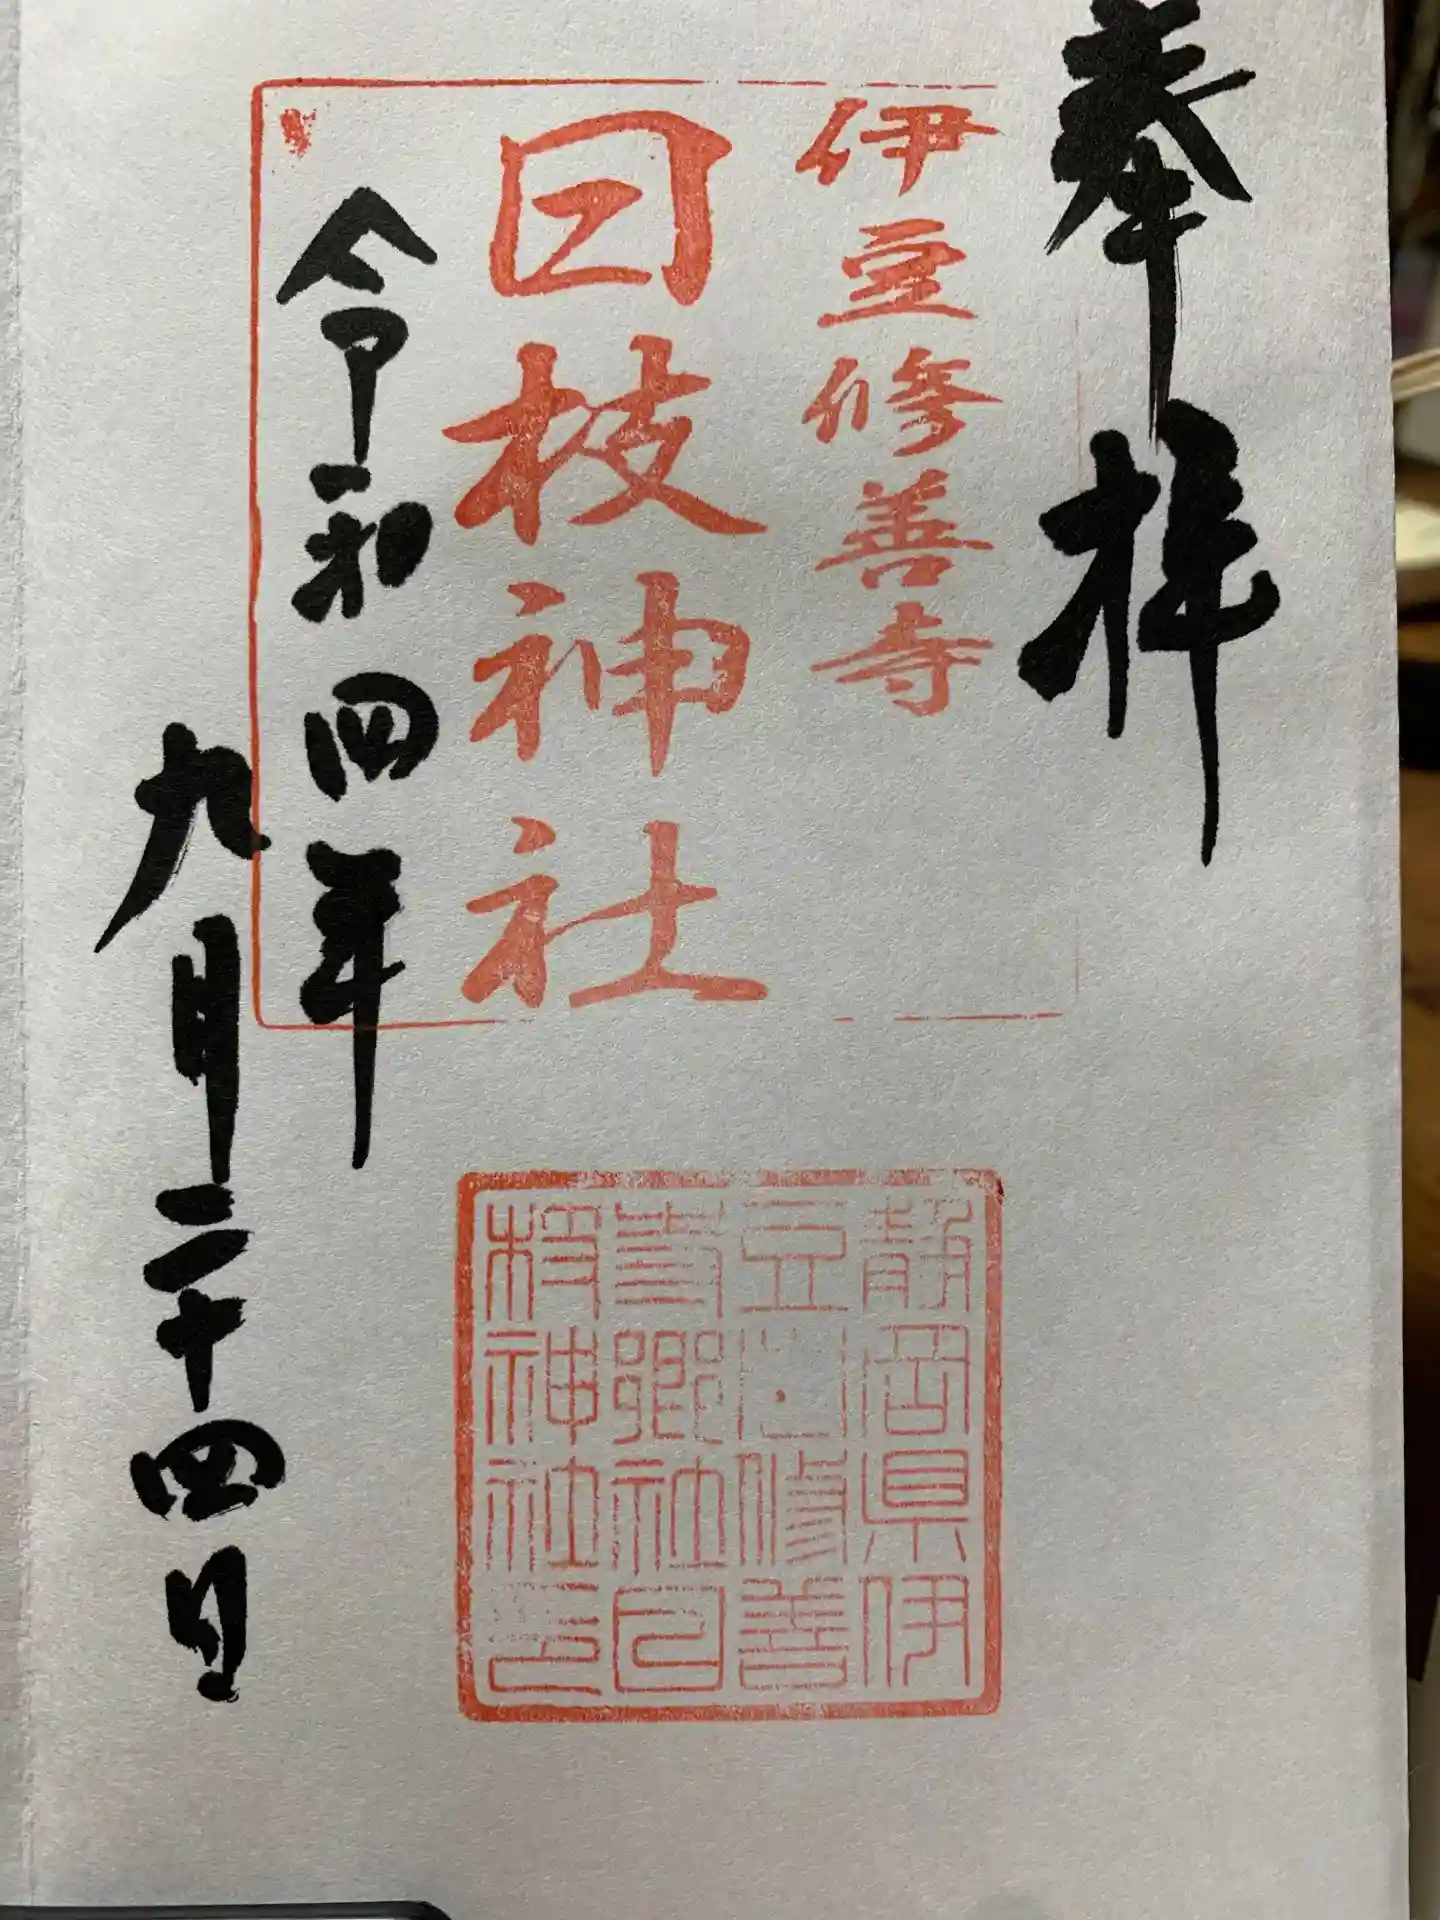 奉拝
伊豆修善寺
日枝神社
令和四年
九月二十四日
静岡県伊
豆修善
寺郷社日
枝神社印